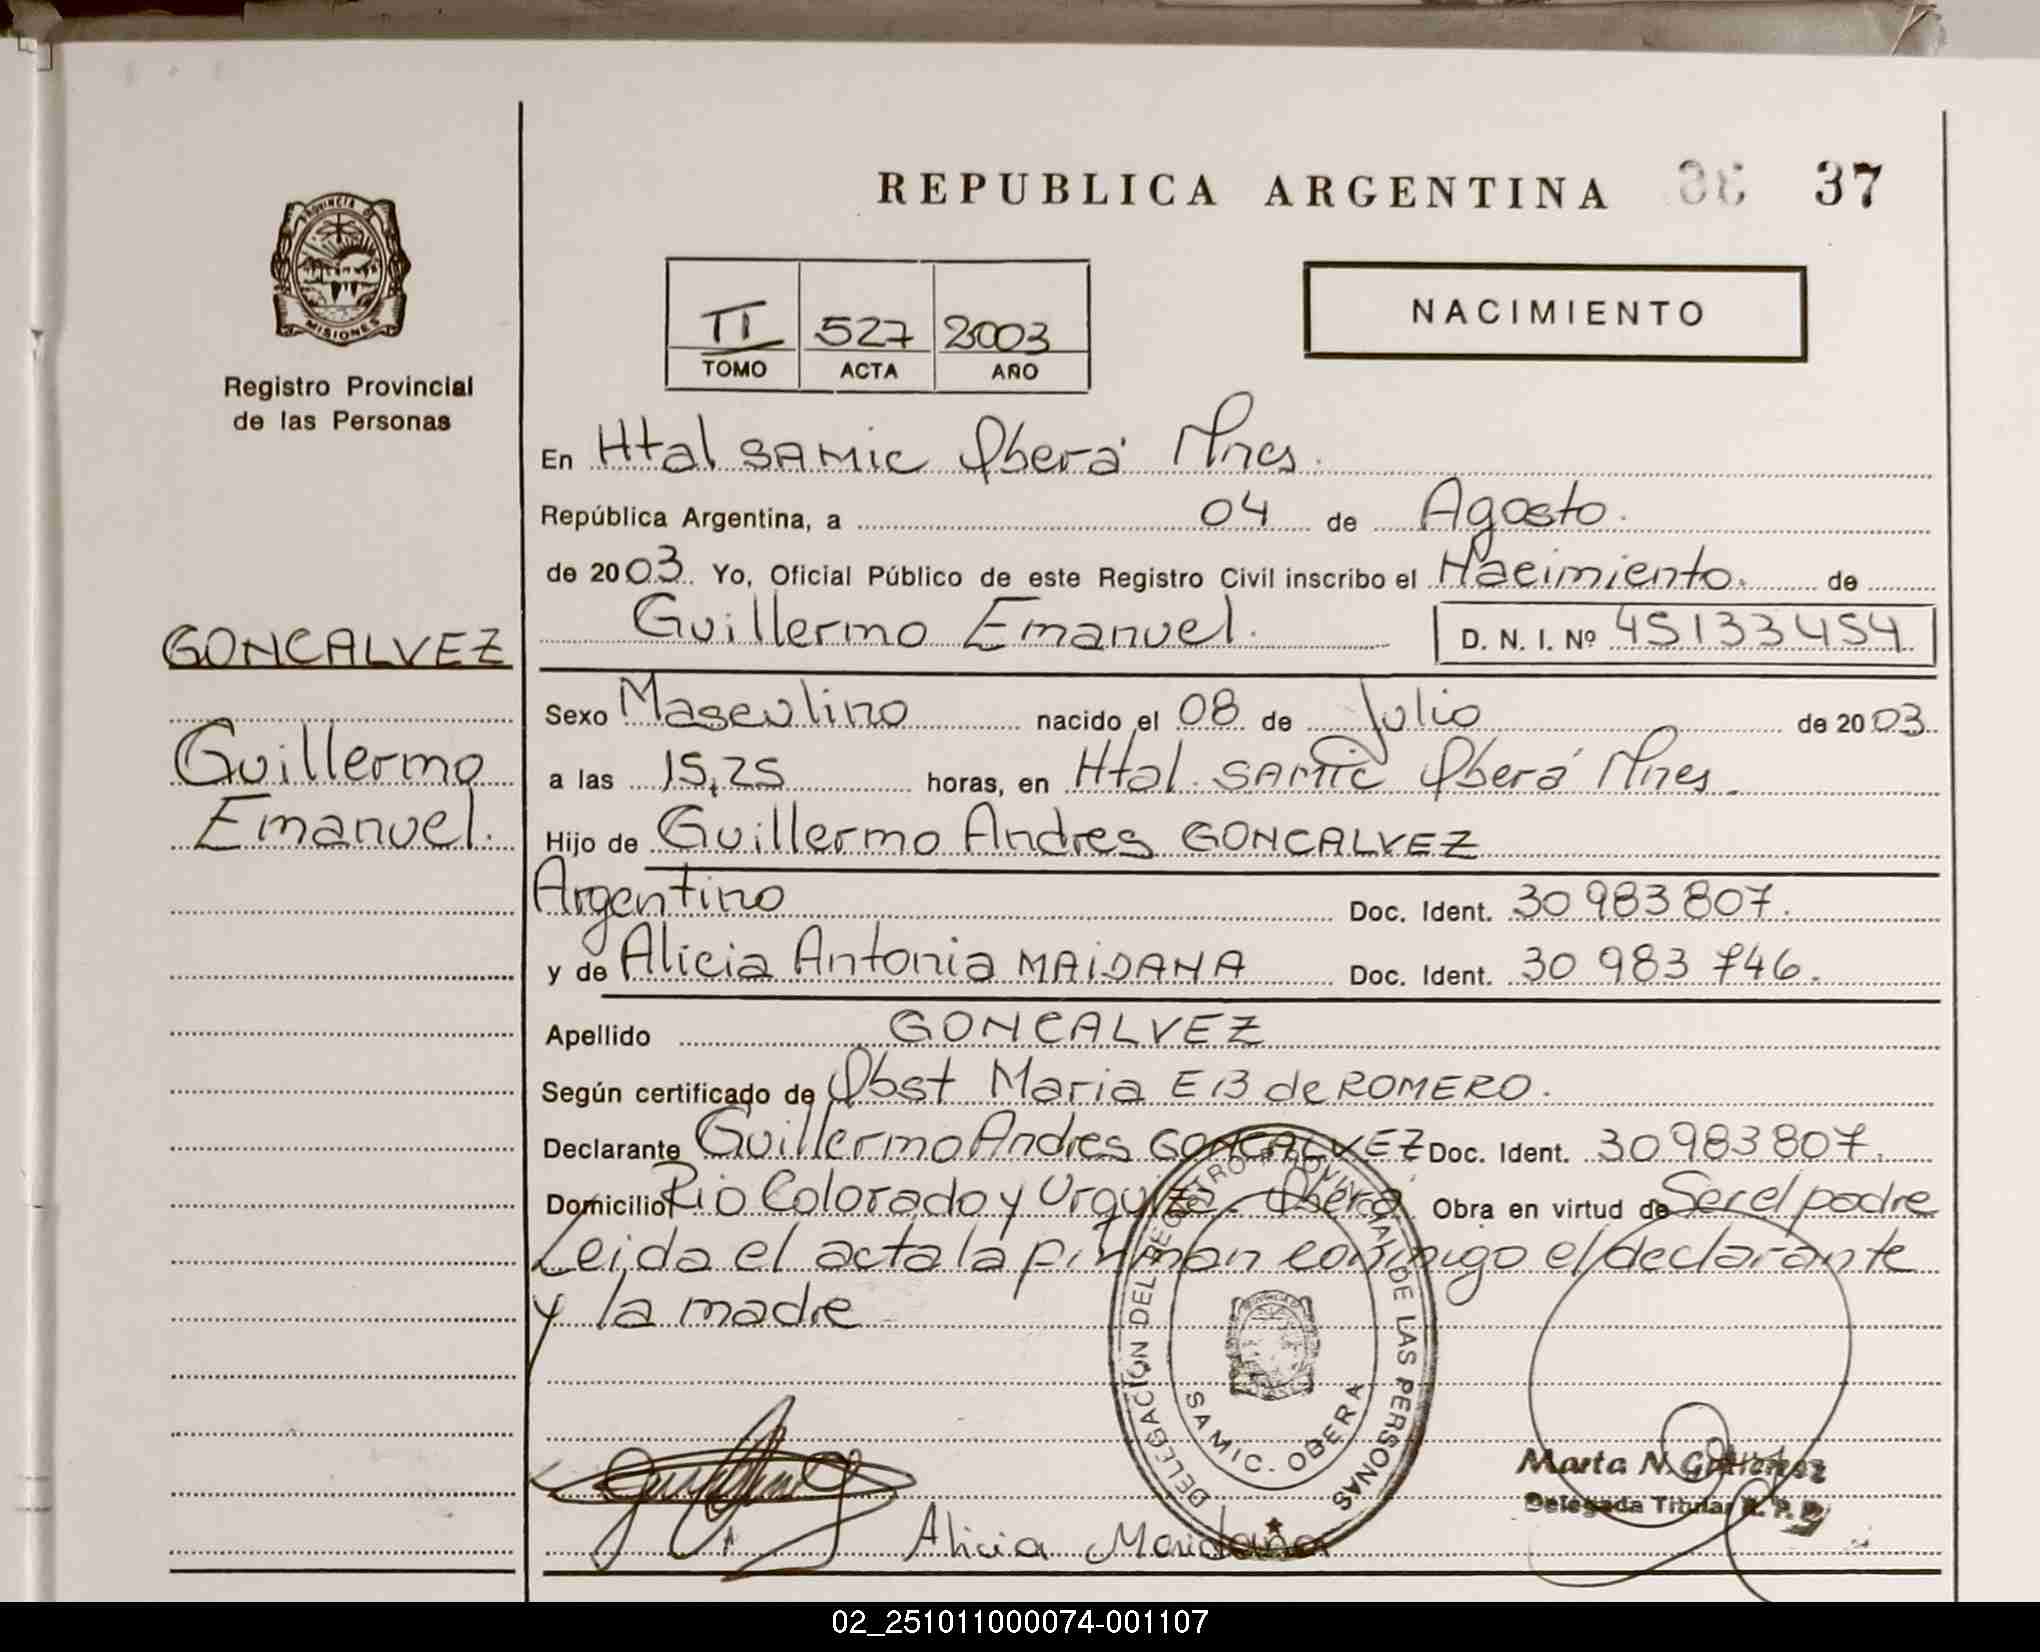 REPUBLICA ARGENTINA 36 37
PROVINCIA DE
MISIONES
Registro Provincial
de las Personas
II 527 2003
TOMO ACTA AÑO
NACIMIENTO
En Htal SAMIC Oberá Mnes.
República Argentina, a 04 de Agosto.
de 2003. Yo, Oficial Público de este Registro Civil inscribo el Nacimiento. de
GONCALVEZ
Guillermo Emanuel. D. N. I. Nº 45133454
Sexo Masculino nacido el 08 de Julio de 2003.
Guillermo
Emanuel.
a las 15,25 horas, en Htal. SAMIC Oberá Mnes.
Hijo de Guillermo Andres GONCALVEZ
Argentino Doc. Ident. 30 983 807.
y de Alicia Antonia MAIDANA Doc. Ident. 30 983 746.
Apellido GONCALVEZ
Según certificado de Obst Maria E B de ROMERO.
Declarante Guillermo Andres GONCALVEZ Doc. Ident. 30 983 807.
Domicilio Rio Colorado y Urquiza - Oberá. Obra en virtud de Ser el padre
Leida el acta la firman conmigo el declarante
y la madre
DELEGACIÓN DEL REGISTRO PROVINCIAL DE LAS PERSONAS
SAMIC. OBERA
Alicia Maidana
Marta N.
Delegada Titular R. P. P.
02_251011000074-001107